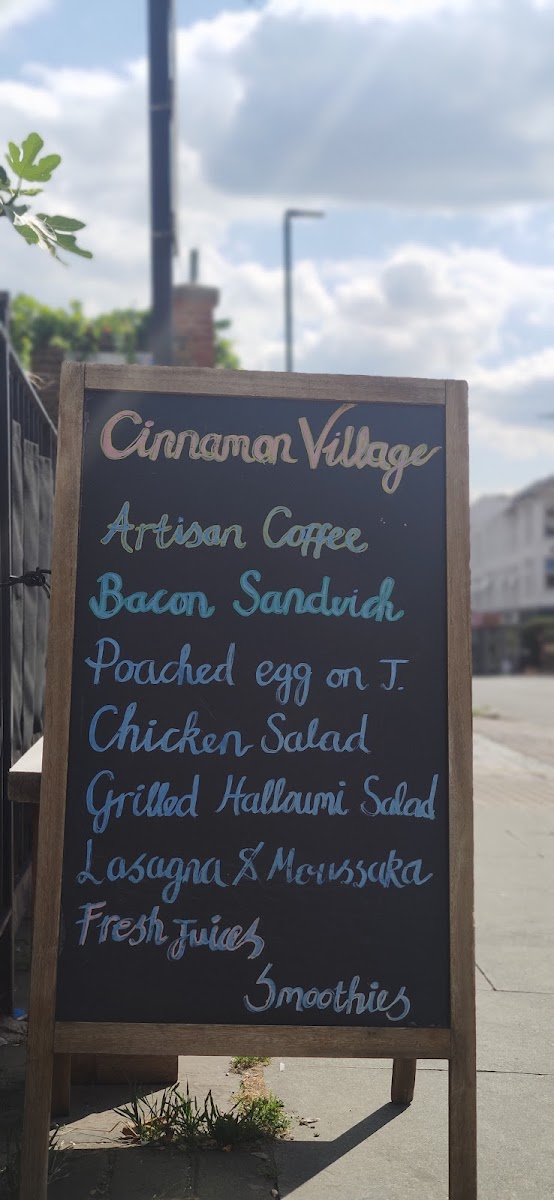 Cinnamon Village
Artisan Coffee
Bacon Sandwich
Poached egg on T.
Chicken Salad
Grilled Halloumi Salad
Lasagna & Moussaka
Fresh Juices
Smoothies